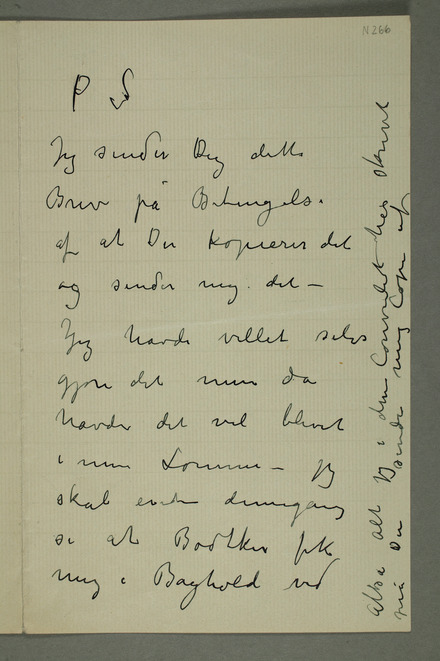 N 266
P S
Jeg sender Dig dette
Brev på Betingelse
af at Du kopierer det
og sender mig det –
Jeg havde villet selv
gjøre det men da
havde det vel blevet
i min Lomme – Jeg
skal denne gang
se at Bødtker fik
mig i Baghold ved
altså alt jeg i den her skrevet
må Du sende mig Copi af